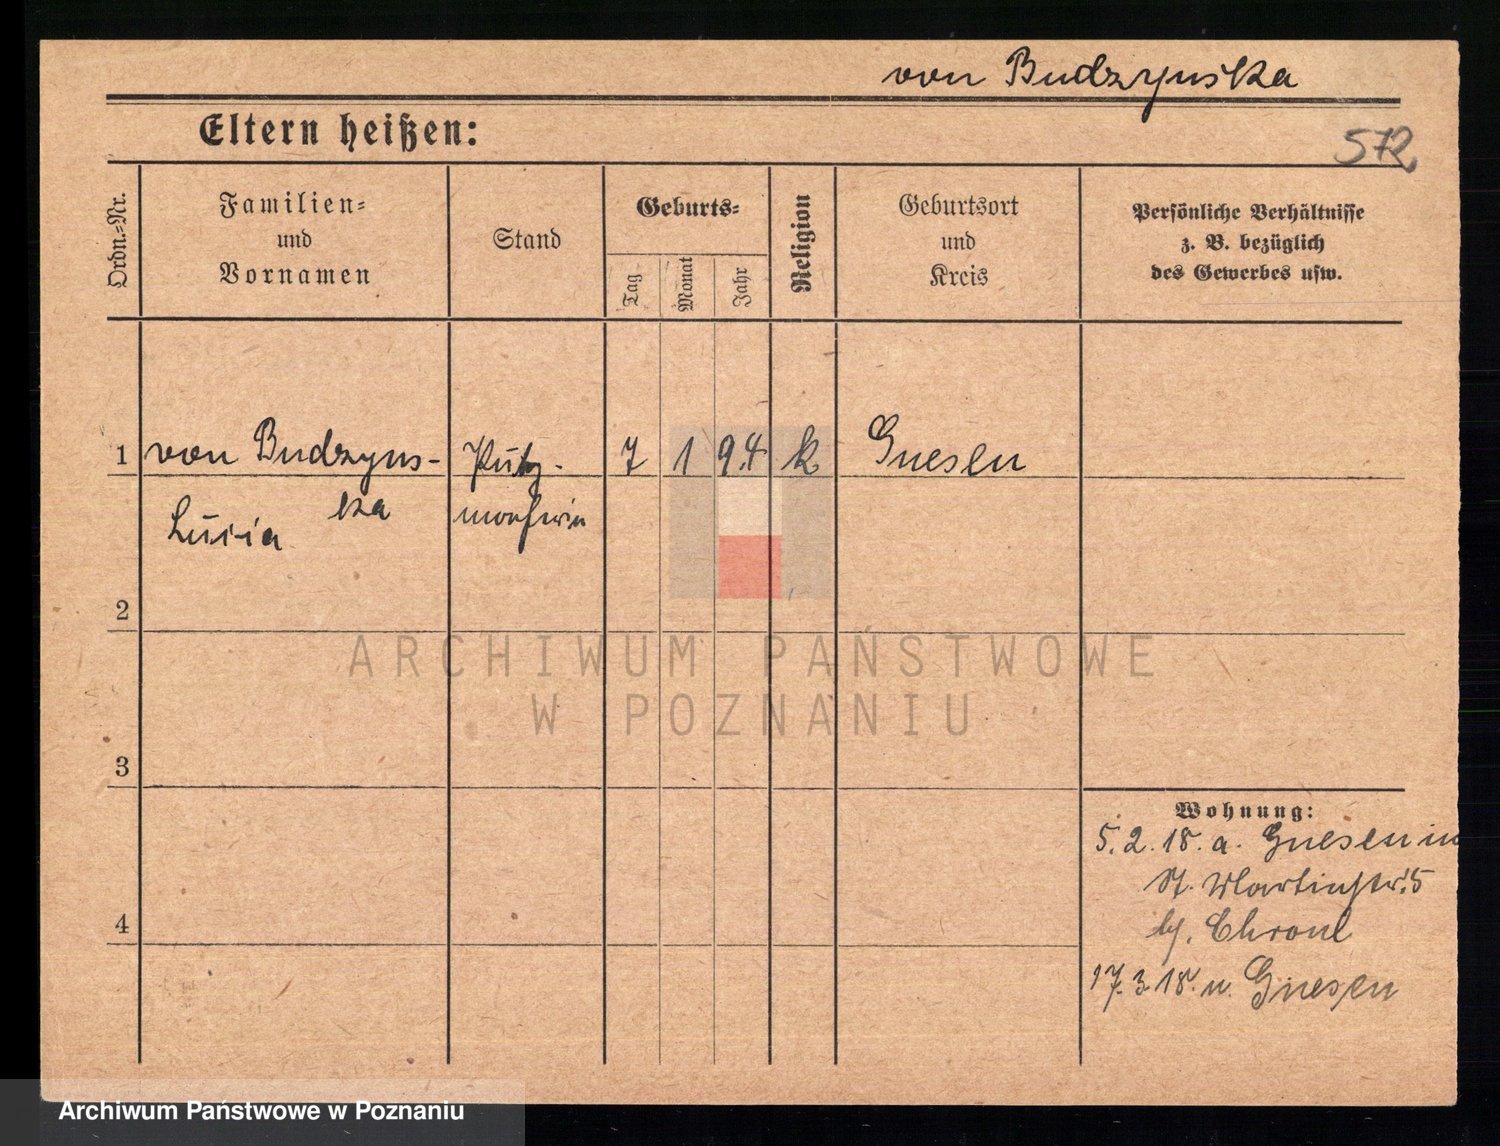 von Budzynska
Eltern heißen:
572
Ordn.-Nr.
Familien-
und
Vornamen
Stand
Geburts-
Tag
Monat
Jahr
Religion
Geburtsort
und
Kreis
Persönliche Verhältnisse
z. B. bezüglich
des Gewerbes usw.
1 von Budzyns- Putz- 7 1 94 k Gnesen
ka
Luzia macherin
2
ARCHIWUM PAŃSTWOWE
W POZNANIU
3
Wohnung:
5.2.18. a. Gnesen in
St. Martinstr. 5
b/. Chroul
4
17.3.18. n. Gnesen
Archiwum Państwowe w Poznaniu